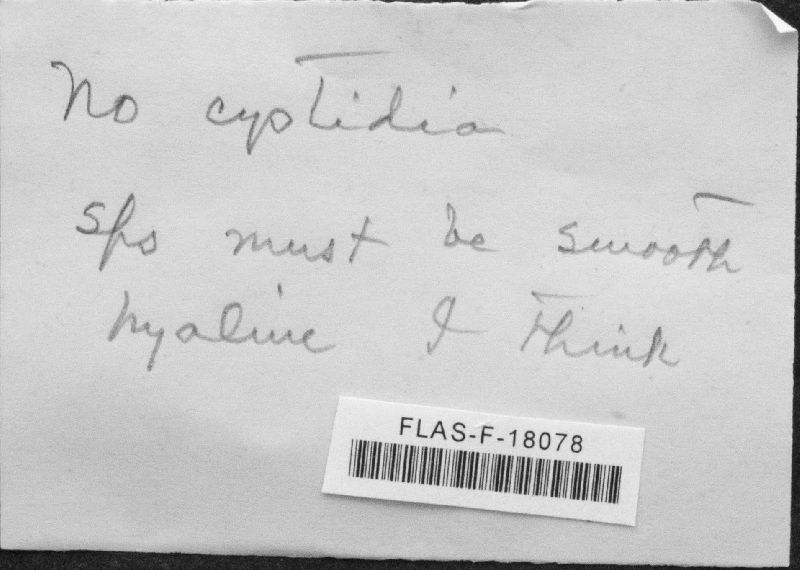 No cystidia
sps must be smooth
hyaline I think
FLAS-F-18078